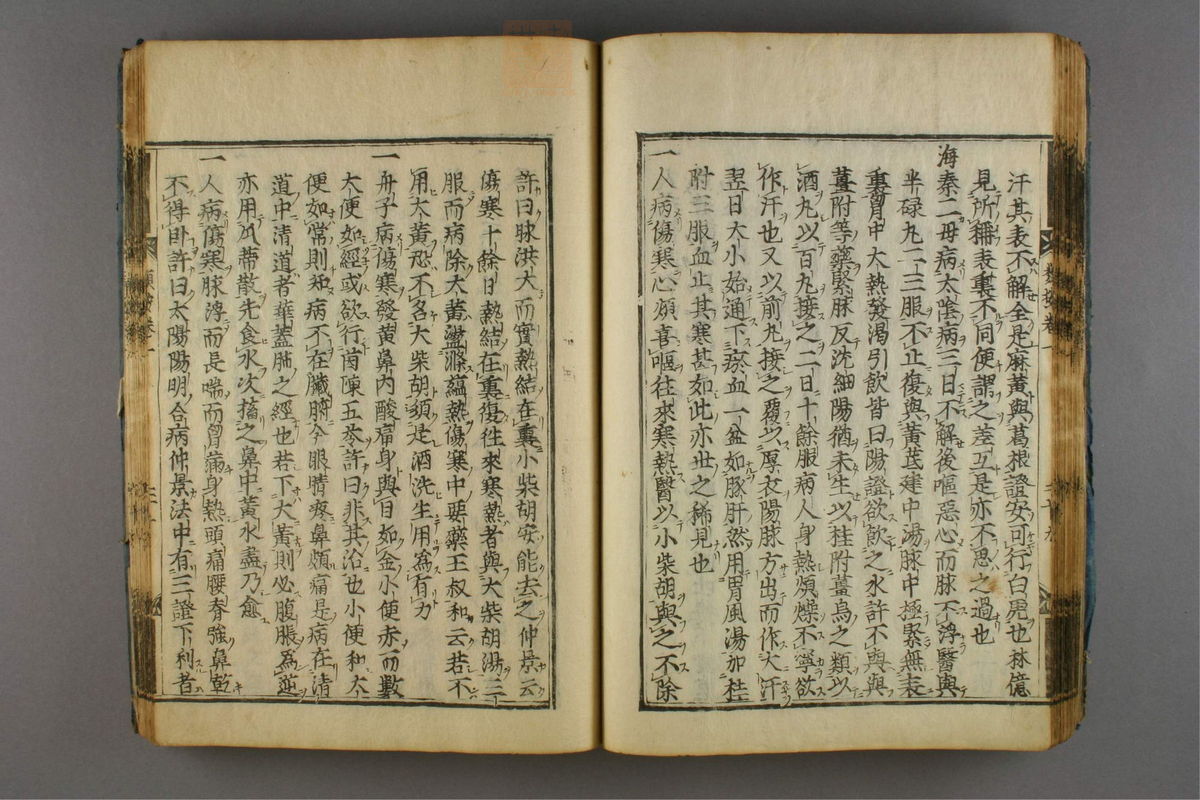 汗其表不解全是麻黄與葛根證安可行白虎也林億
見所稱表裏不同便謂之差互是亦不思之過也
海秦二母病太陰病三日不解後嘔惡心而脉不浮醫與
半硫丸二三服不止復與黃芪建中湯脉中極緊無表
裏胷中大熱發渴引飲皆曰陽證欲飲之水許不與與
薑附等藥緊脉反沈細陽猶未生以桂附薑烏之類以
酒丸以百丸接之二日十餘服病人身熱煩燥不寧欲
作汗也又以前丸接之覆以厚衣陽脉方出而作大汗
翌日大小始通下瘀血一盆如豚肝然用胃風湯加桂
附三服血止其寒甚如此亦世之稀見也
一人病傷寒心煩喜嘔往來寒熱醫以小柴胡與之不除
許曰脉洪大而實熱結在裏小柴胡安能去之仲景云
傷寒十餘日熱結在裏復往來寒熱者與大柴胡湯三
服而病除大黃盪滌蘊熱傷寒中要藥王叔和云若不
用大黃恐不名大柴胡須是酒洗生用爲有力
一舟子病傷寒發黃鼻内酸痛身與目如金小便赤而數
大便如經或欲行茵陳五苓許曰非其治也小便和大
便如常則知病不在臟腑今眼睛疼鼻頞痛是病在清
道中清道者華蓋肺之經也若下大黃則必腹脹爲逆
亦用瓜蒂散先食水次搐之鼻中黃水盡乃愈
一人病傷寒脉浮而長喘而胷滿身熱頭痛腰脊強鼻乾
不得卧許曰太陽陽明合病仲景法中有三證下利者